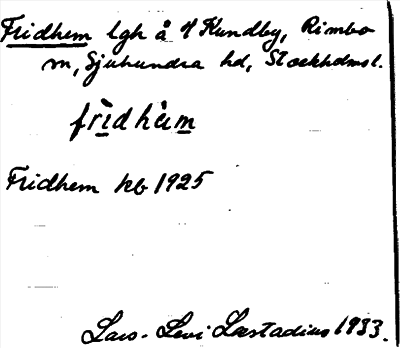 Fridhem lgh å ¼ Kundby, Rimbo
m, Sjuhundra hd, Stockholms l.
frìdhèim
Fridhem kb 1925
Lars-Levi Læstadius 1933.